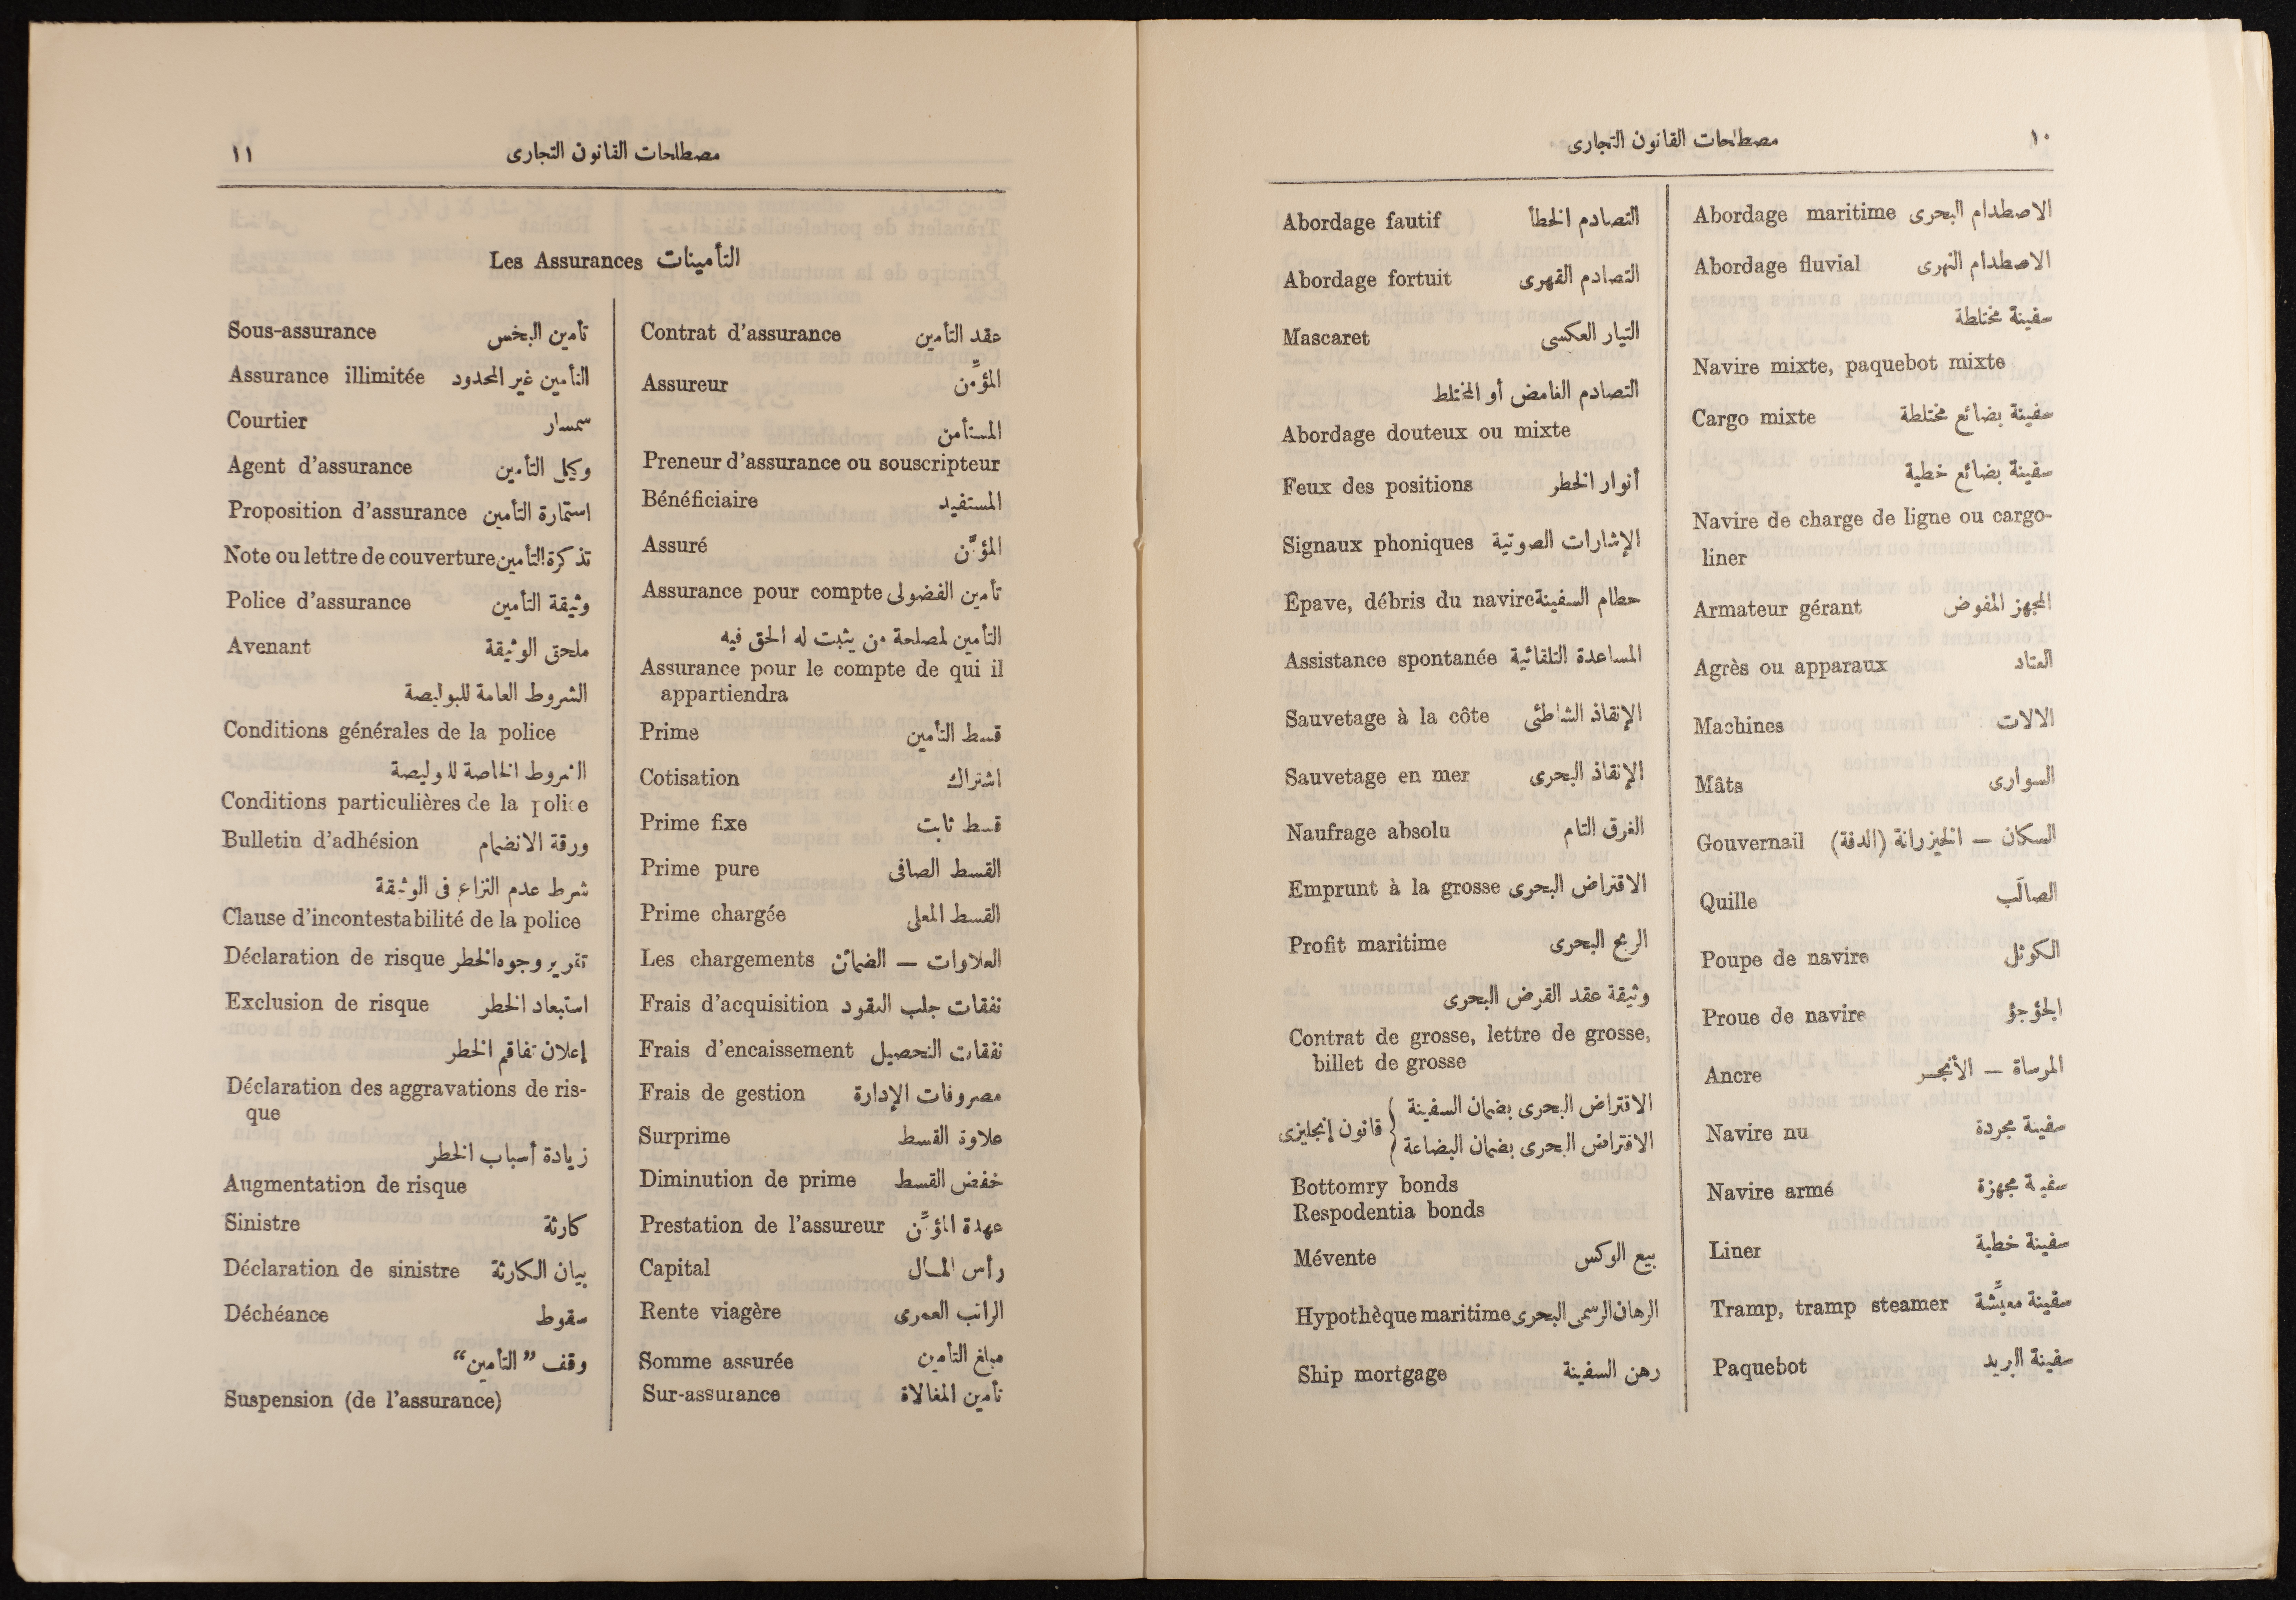 ١٠
مصطلحات القانون التجارى
Abordage maritime الاصطدام البحرى
Abordage fluvial الاصطدام النهرى
سفينة مختلطة
Navire mixte, paquebot mixte
Cargo mixte سفينة بضائع مختلطة
سفينة بضائع خطية
Navire de charge de ligne ou cargo-
liner
Armateur gérant المجهز المفوض
Agrès ou apparaux العتاد
Machines الالات
Mâts السوارى
Gouvernail السكان — الخيزرانة (الدفة)
Quille الصالَب
Poupe de navire الكوثل
Proue de navire الجؤجؤ
Ancre المرساة — الأنجر
Navire nu سفينة مجردة
Navire armé سفينة مجهزة
Liner سفينة خطية
Tramp, tramp steamer سفينة معيِّشة
Paquebot سفينة البريد
Abordage fautif التصادم الخطأ
Abordage fortuit التصادم القهرى
Mascaret التيار العكسى
التصادم الغامض أو المختلط
Abordage douteux ou mixte
Feux des positions أنوار الخطر
Signaux phoniques الإشارات الصوتية
Épave, débris du navire حطام السفينة
Assistance spontanée المساعدة التلقائية
Sauvetage à la côte الإنقاذ الشاطئى
Sauvetage en mer الإنقاذ البحرى
Naufrage absolu الغرق التام
Emprunt à la grosse الاقتراض البحرى
Profit maritime الربح البحرى
وثيقة عقد القرض البحرى
Contrat de grosse, lettre de grosse,
billet de grosse
الاقتراض البحرى بضمان السفينة
الاقتراض البحرى بضمان البضاعة } قانون إنجليزى
Bottomry bonds
Respodentia bonds
Mévente بيع الوكس
Hypothèque maritime الرهان الرسمى البحرى
Ship mortgage رهن السفينة
١١
مصطلحات القانون التجارى
Les Assurances التأمينات
Contrat d'assurance عقد التأمين
Assureur المؤمِّن
المستأمن
Preneur d'assurance ou souscripteur
Bénéficiaire المستفيد
Assuré المؤمَّن
Assurance pour compte تأمين الفضولى
التأمين لمصلحة من يثبت له الحق فيه
Assurance pour le compte de qui il
appartiendra
Prime قسط التأمين
Cotisation اشتراك
Prime fixe قسط ثابت
Prime pure القسط الصافى
Prime chargée القسط المعلى
Les chargements العلاوات — الضمائن
Frais d'acquisition نفقات جلب النقود
Frais d'encaissement نفقات التحصيل
Frais de gestion مصروفات الإدارة
Surprime علاوة القسط
Diminution de prime خفض القسط
Prestation de l'assureur عهدة المؤمِّن
Capital رأس المال
Rente viagère الراتب العمرى
Somme assurée مبلغ التأمين
Sur-assurance تأمين المغالاة
Sous-assurance تأمين البخس
Assurance illimitée التأمين غير المحدود
Courtier سمسار
Agent d'assurance وكيل التأمين
Proposition d'assurance استمارة التأمين
Note ou lettre de couverture تذكرة التأمين
Police d'assurance وثيقة التأمين
Avenant ملحق الوثيقة
الشروط العامة للبوليصة
Conditions générales de la police
الشروط الخاصة للبوليصة
Conditions particulières de la police
Bulletin d'adhésion ورقة الانضمام
شرط عدم النزاع فى الوثيقة
Clause d'incontestabilité de la police
Déclaration de risque تقرير وجوه الخطر
Exclusion de risque استبعاد الخطر
إعلان تفاقم الخطر
Déclaration des aggravations de ris-
que
زيادة أسباب الخطر
Augmentation de risque
Sinistre كارثة
Déclaration de sinistre بيان الكارثة
Déchéance سقوط
وقف "التأمين"
Suspension (de l'assurance)